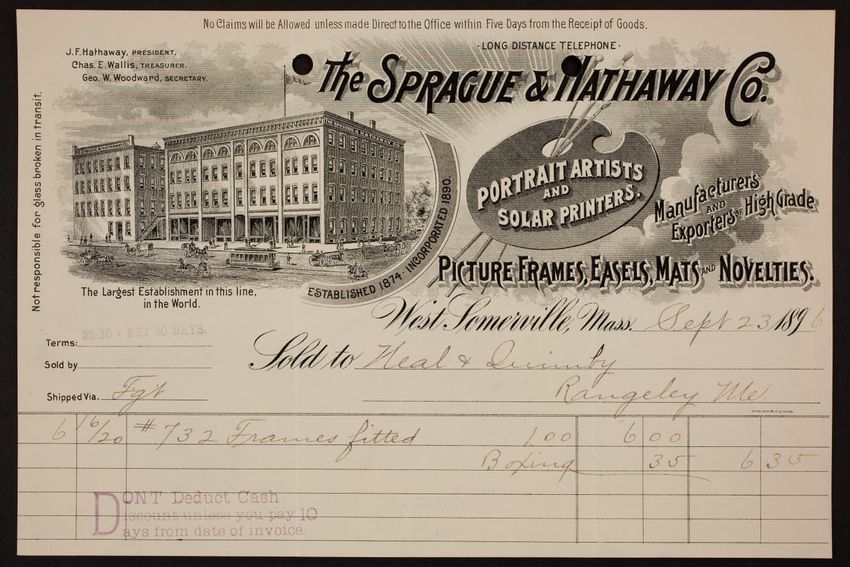 No Claims will be Allowed unless made Direct to the Office within Five Days from the Receipt of Goods.
· LONG DISTANCE TELEPHONE ·
J. F. Hathaway, PRESIDENT.
Chas. E. Wallis, TREASURER.
Geo. W. Woodward, SECRETARY.
The SPRAGUE & HATHAWAY Co.
Not responsible for glass broken in transit.
PORTRAIT ARTISTS
AND
SOLAR PRINTERS.
Manufacturers
AND
Exporters OF High Grade
PICTURE FRAMES, EASELS, MATS AND NOVELTIES.
ESTABLISHED 1874. INCORPORATED 1890.
The Largest Establishment in this line,
in the World.
West Somerville, Mass. Sept 23 1896
Terms: 2% 10 - NET 30 DAYS.
Sold by
Sold to Neal & Quimby
Rangeley Me.
Shipped Via. Fgt
6 16/20 #732 Frames fitted 1 00 6 00
Boxing 35 6 35
DONT Deduct Cash
Discount unless you pay 10
Days from date of Invoice.